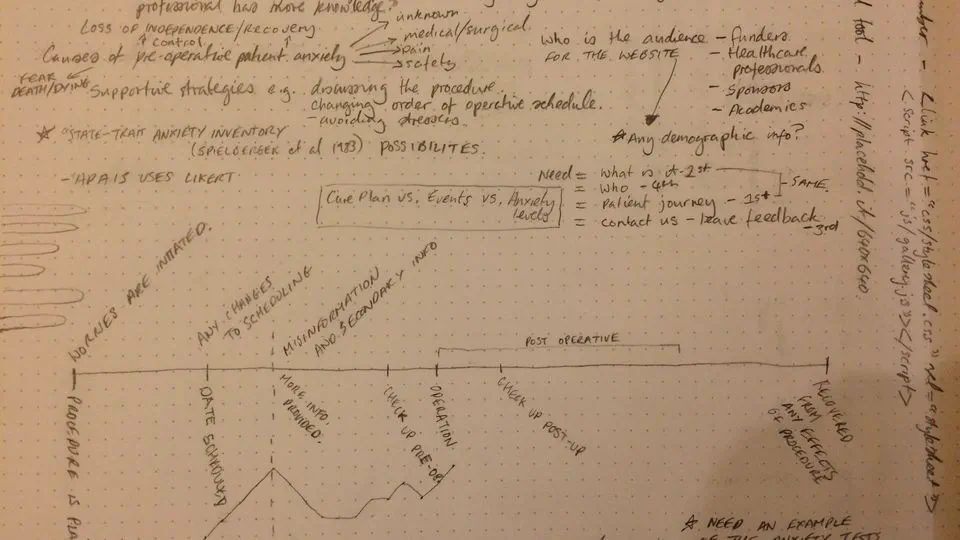 professional has more knowledge?
LOSS OF INDEPENDENCE/RECOVERY
control
Causes of pre-operative patient anxiety
unknown
medical/surgical
pain
safety
FEAR
DEATH/DYING
Supportive strategies e.g. discussing the procedure.
changing order of operative schedule.
- avoiding stressors.
"STATE-TRAIT ANXIETY INVENTORY
(SPIELBERGER et al 1983) POSSIBILITES.
- APAIS USES LIKERT
Who is the audience
FOR THE WEBSITE
- Funders
- Healthcare
professionals.
- Sponsors
- Academics
Any demographic info?
Need = what is it - 2nd
= Who - 4th
= patient journey - 1st
SAME.
= contact us - leave feedback
- 3rd
Care Plan vs. Events vs. Anxiety
levels
WORRIES ARE INITIATED.
ANY CHANGES
TO SCHEDULING
MISINFORMATION
AND SECONDARY INFO
POST OPERATIVE
PROCEDURE IS
DATE SCHEDULED
MORE INFO.
PROVIDED.
CHECK UP PRE-OP
OPERATION
CHECK UP POST-UP
RECOVERED
FROM
ANY EFFECTS
OF PROCEDURE
NEED AN EXAMPLE
OF THE ANXIETY TESTS
<link href="css/stylesheet.css" rel="stylesheet">
<script src="js/gallery.js"></script>
tool - http://placehold.it/640x640.